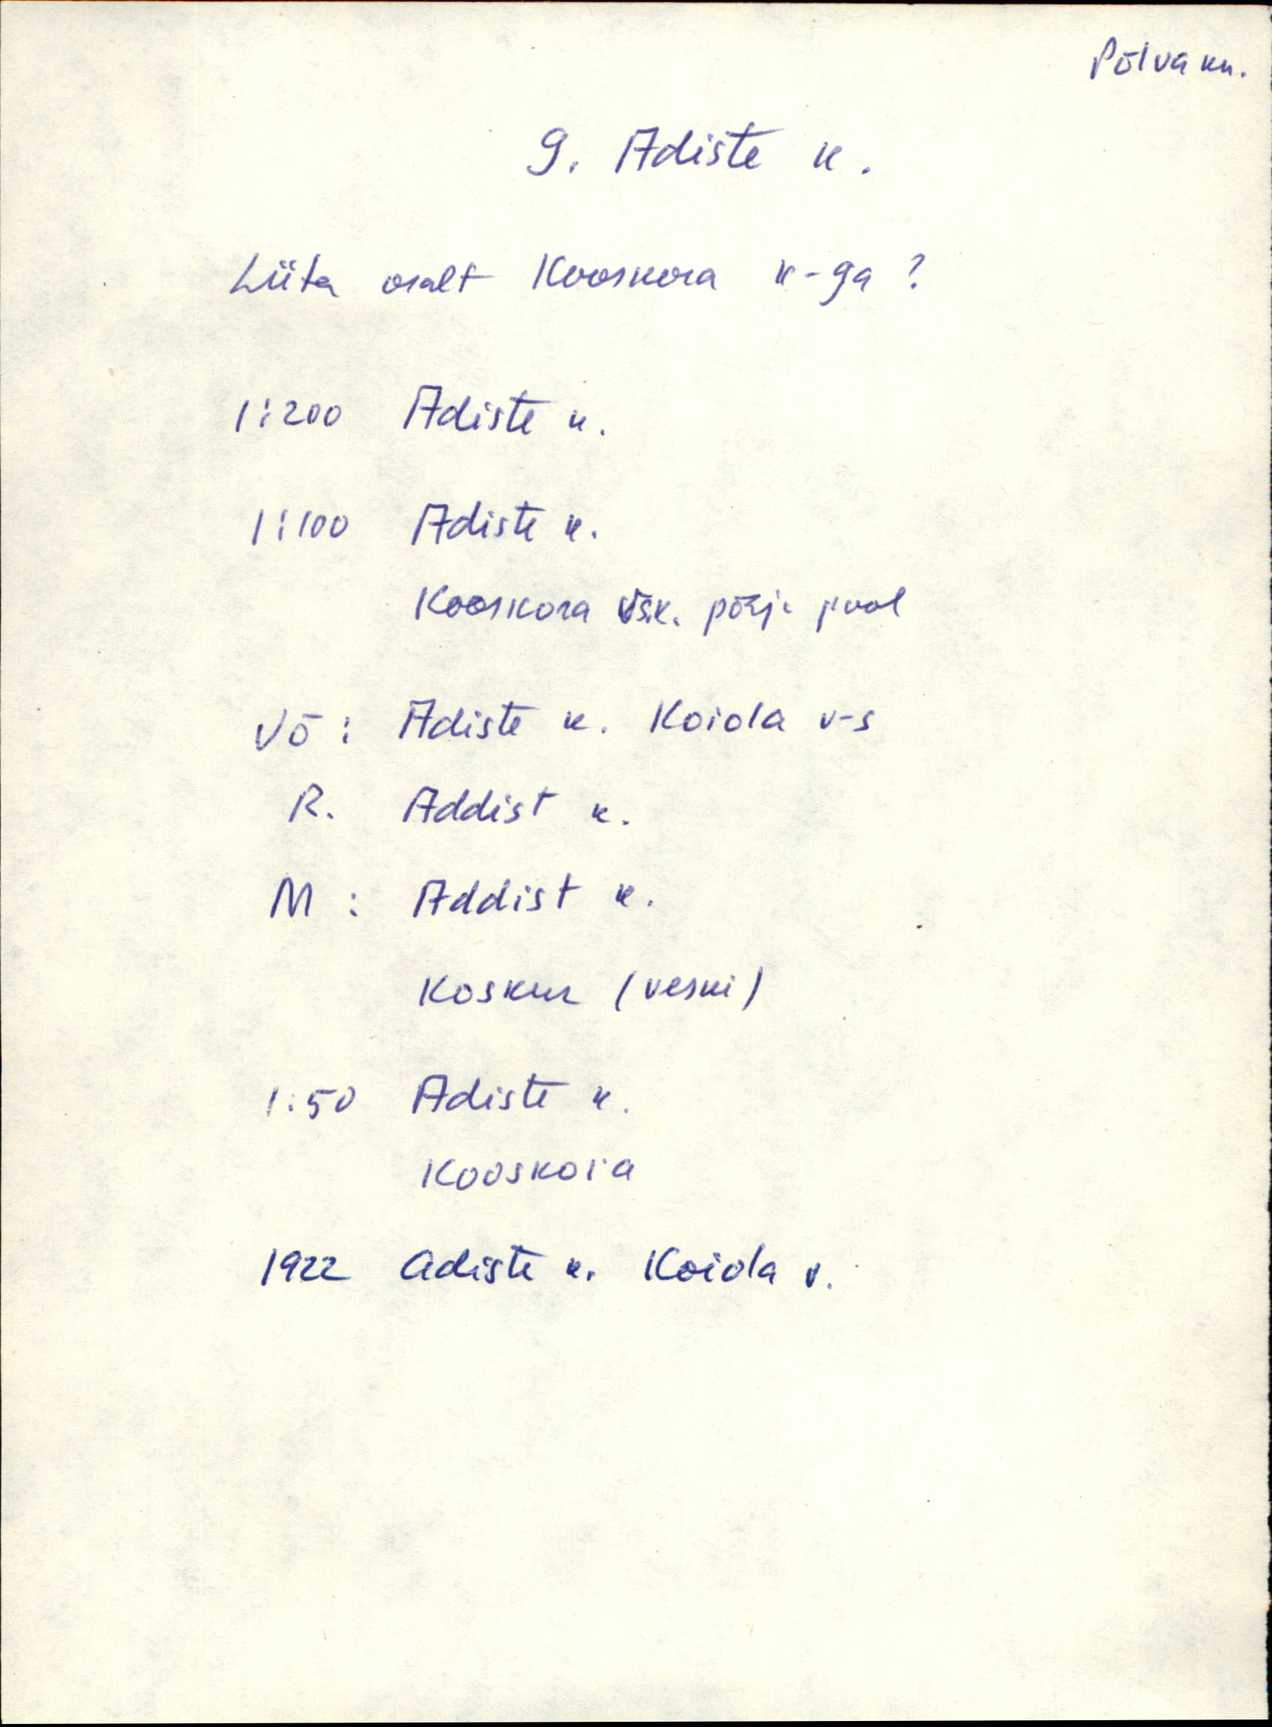 Põlva kh.
9. Adiste k.
Liita osalt Kooskora k-ga?
1:200 Adiste k.
1:100 Adiste k.
Kooskora põhja pool
Võ: Adiste k. Koiola v-s
R. Addist k.
M: Addist k.
Koskur (veski)
1:50 Adiste k.
Kooskora
1922 Adiste k. Koiola v.